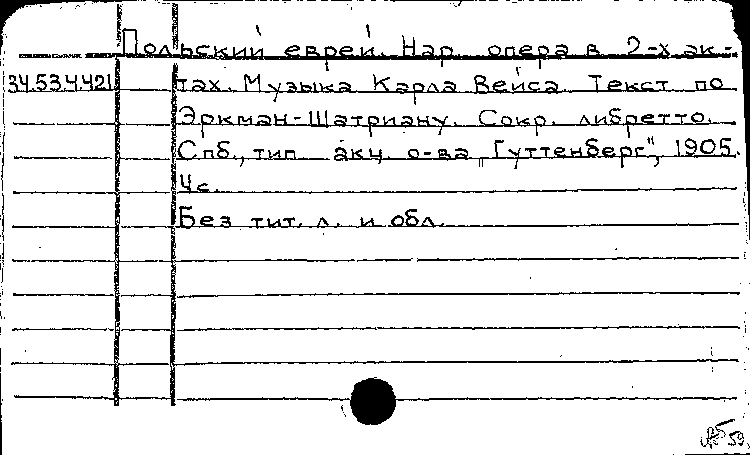 Польский еврей. Нар. опера в 2-х ак-
34.53.4.421 тах. Музыка Карла Вейса. Текст по
Эркман-Шатриану. Сокр. либретто.
Спб., тип. акц. о-ва „Гуттенберг", 1905.
4с.
Без тит. л. и обл.
59